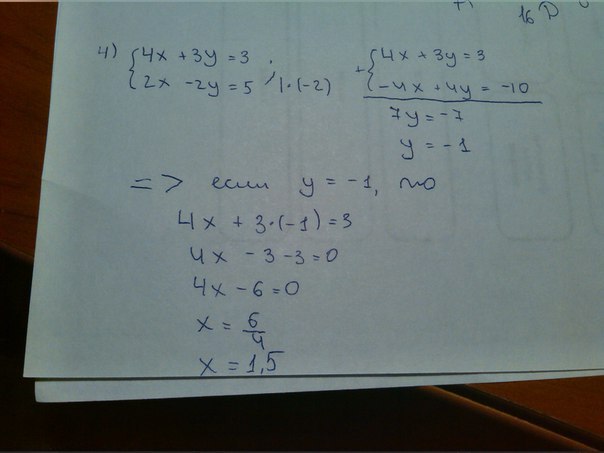 16 D
4) { 4x + 3y = 3 ;
{ 2x - 2y = 5 / | · (-2)
+ { 4x + 3y = 3
{ -4x + 4y = -10
7y = -7
y = -1
=> если y = -1, то
4x + 3·(-1) = 3
4x - 3 - 3 = 0
4x - 6 = 0
x = 6/4
x = 1,5